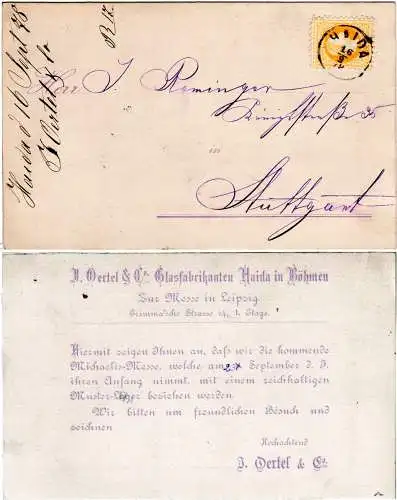 Haida d 16 Sept 78
J Oertel & Co
HAIDA
16
9
Herr J. Reminger
Königstraße 35
in
Stuttgart
J. Oertel & Co. Glasfabrikanten Haida in Böhmen
Zur Messe in Leipzig
Grimmaische Strasse 14, 1. Etage.
Hiermit zeigen Ihnen an, daß wir die kommende
Michaelis-Messe, welche am September d. J.
ihren Anfang nimmt, mit einem reichhaltigen
Muster-Lager beziehen werden.
Wir bitten um freundlichen Besuch und
zeichnen
Hochachtend
J. Oertel & Co.